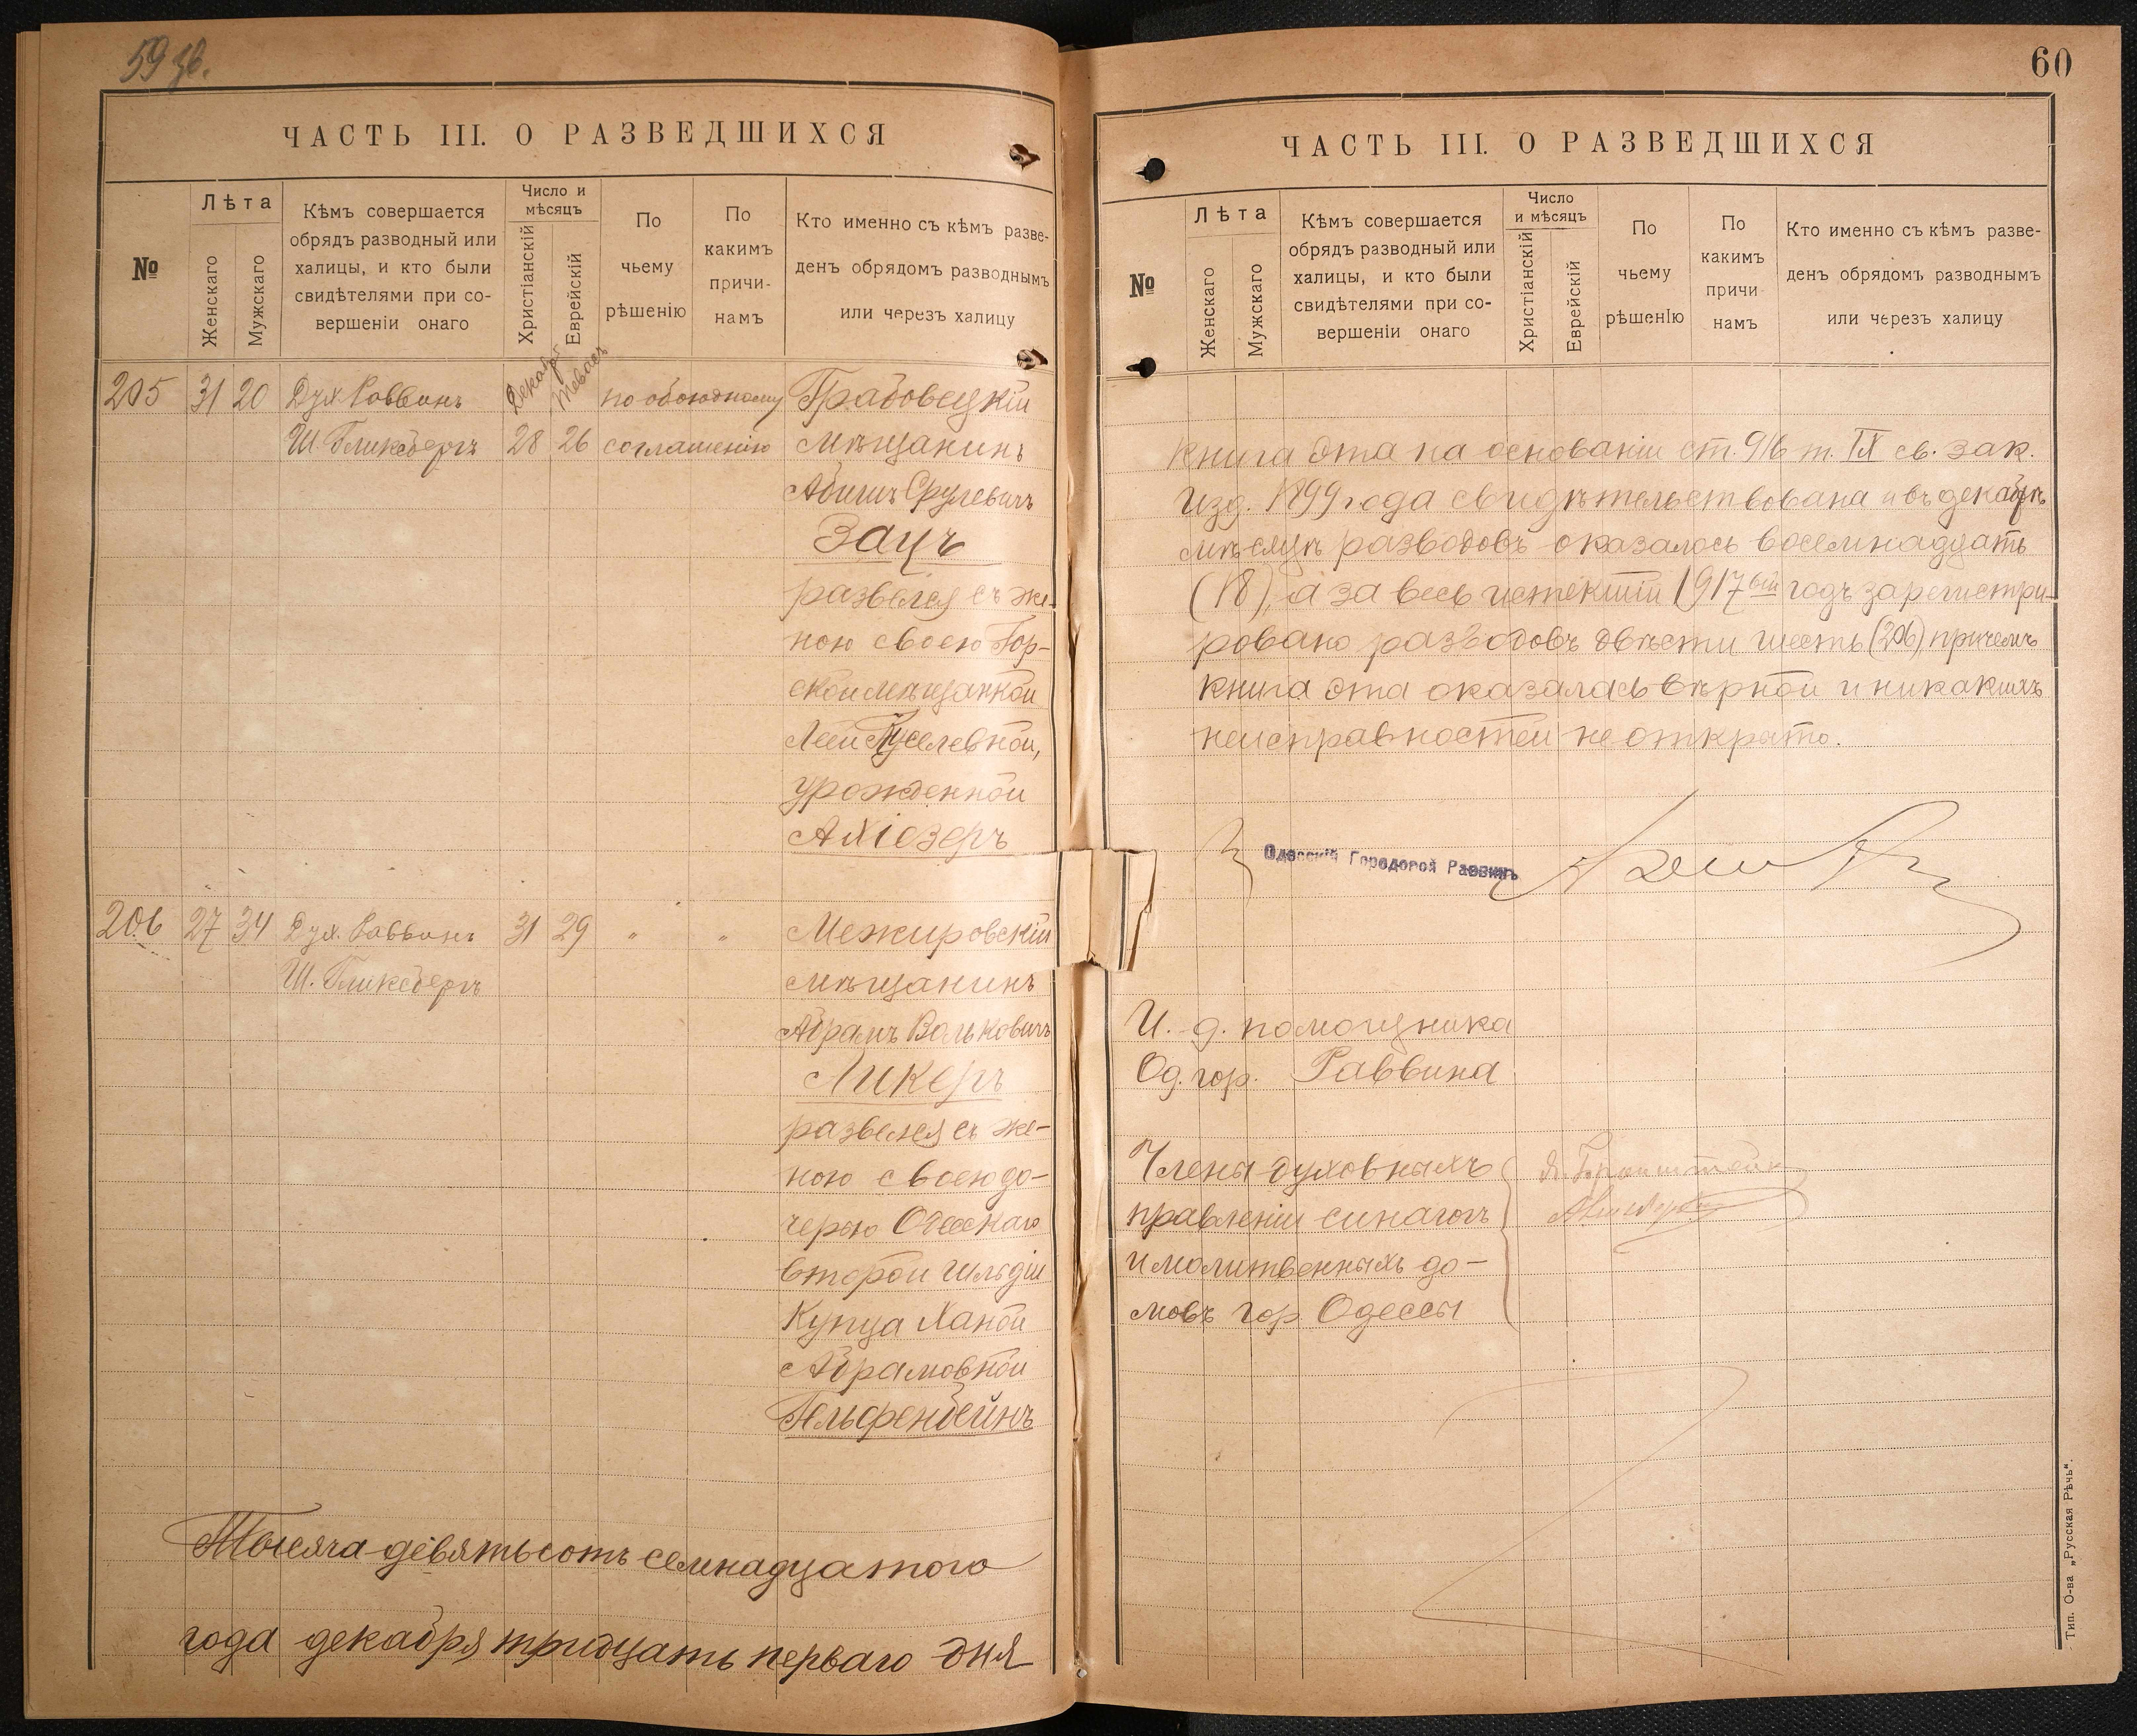 59 зв.
ЧАСТЬ III. О РАЗВЕДШИХСЯ
№
Лѣта
Женскаго
Мужскаго
Кѣмъ совершается
обрядъ разводный или
халицы, и кто были
свидѣтелями при со-
вершеніи онаго
Число и
мѣсяцъ
Христіанскій
Еврейскій
По
чьему
рѣшенію
По
какимъ
причи-
намъ
Кто именно съ кѣмъ разве-
денъ обрядомъ разводнымъ
или через халицу
205 31 20 Дух. Раввинъ Декабр. Тевасъ по обоюдному Грабовецкій
Ш. Гликсбергъ 28 26 соглашенію мѣщанинъ
Абишъ Срулевичъ
Зацъ
развелся съ же-
ною своею Гор-
ской мѣщанкой
Леей
урожденной
Ахіозеръ
206 27 34 Дух. Раввинъ 31 29 " " Межировскій
Ш. Гликсбергъ мѣщанинъ
Абрамъ Вольковичъ
Ликеръ
развелся съ же-
ною своею до-
черью Одесскаго
второй гильдіи
Купца Ханой
Абрамовной
Гельфенбейнъ
Тысяча девятьсотъ семнадцатого
года декабря тридцать перваго дня
60
ЧАСТЬ III. О РАЗВЕДШИХСЯ
№
Лѣта
Женскаго
Мужскаго
Кѣмъ совершается
обрядъ разводный или
халицы, и кто были
свидѣтелями при со-
вершеніи онаго
Число
и мѣсяцъ
Христіанскій
Еврейскій
По
чьему
рѣшенІю
По
какимъ
причи-
намъ
Кто именно съ кѣмъ разве-
денъ обрядомъ разводнымъ
или черезъ халицу
Книга эта на основаніи ст. 916 т. IX св. зак.
Изд. 1899 года свидѣтельствована и въ декабрѣ
мѣсяцѣ разводовъ оказалось восемнадцать
(18), а за весь истекшій 1917ый годъ зарегистри-
ровано разводовъ двѣсти шесть (206), причемъ
книга эта оказалась вѣрной и никакихъ
неисправностей не открыто.
Одесскій Городовой Раввинъ
И. д. помощника
Од. гор. Раввина
Члены духовныхъ
правленій синагогъ
и молитвенныхъ до-
мовъ гор. Одессы
Тип. О-ва „Русская Рѣчь“.